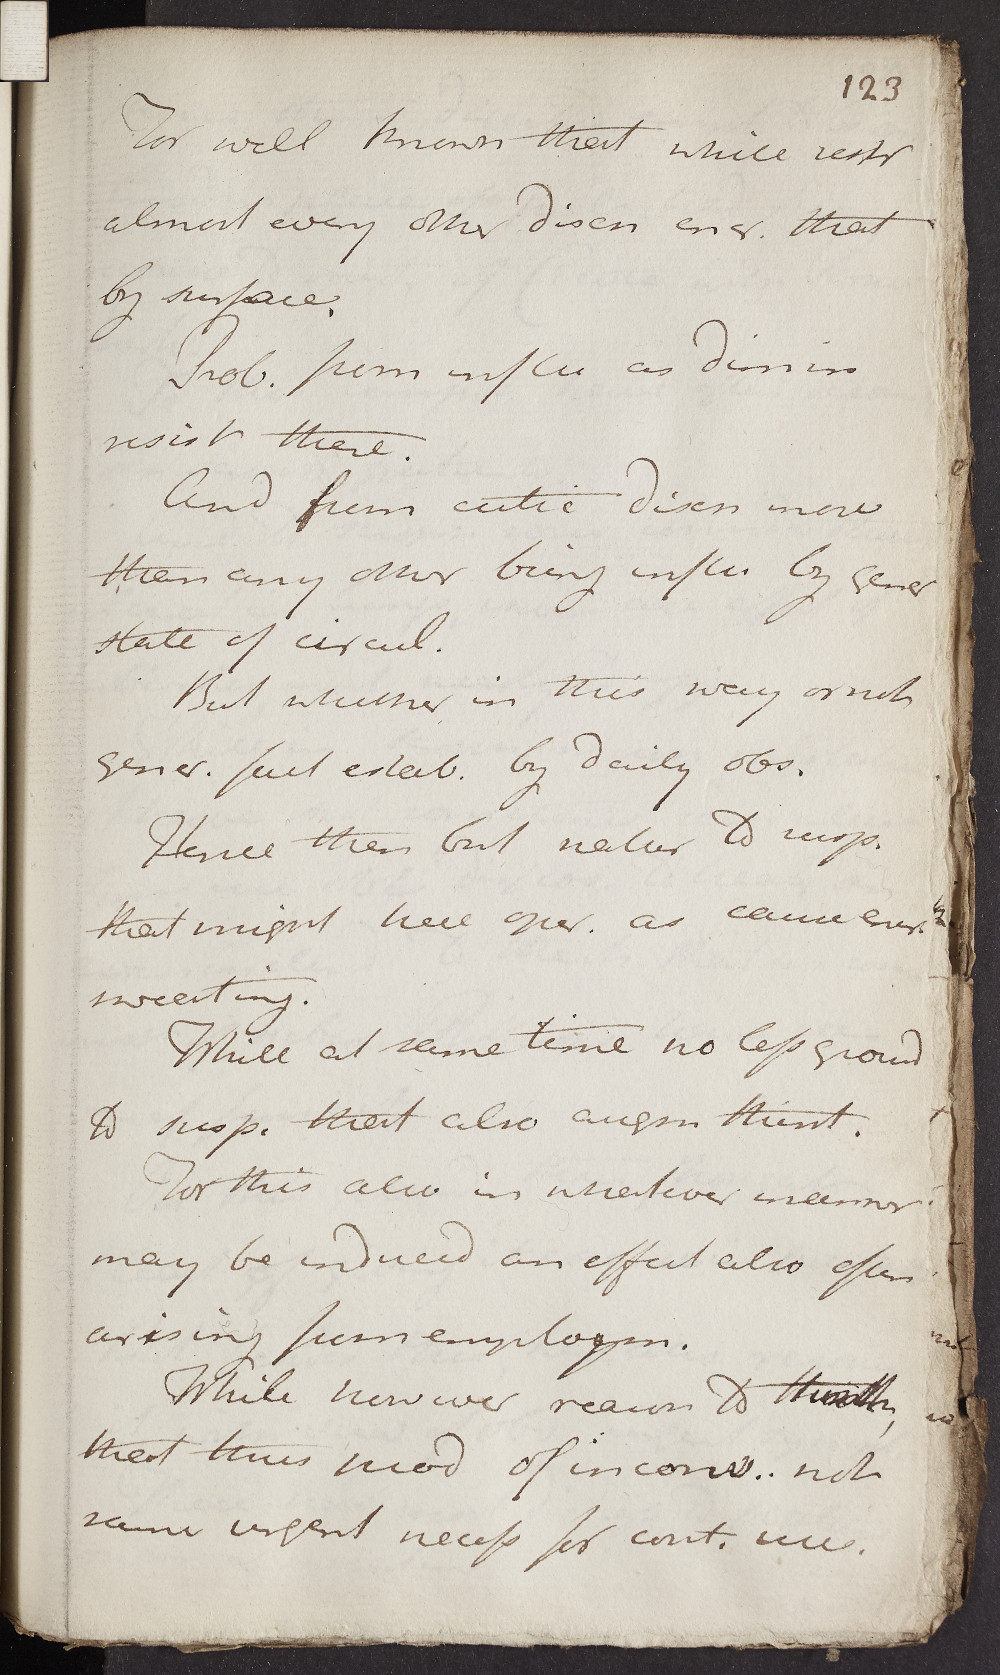 123
For well known that while restr
almost every other disch encr. that
by surface.
Prob. from influ as dimin
resist there.
And from cutic disch more
than any other being influ by gener
state of circul.
But whether in this way or not
gener. fact estab. by daily obs.
Hence then but natur to susp.
that might here oper. as cause
sweating.
While at same time no less ground
to susp. that also augm thirst.
For this also in whatever manner
may be induced an effect also often
arising from employm.
While however reason to think,
that thus prod of inconv.. not
same urgent necess for cont. use.